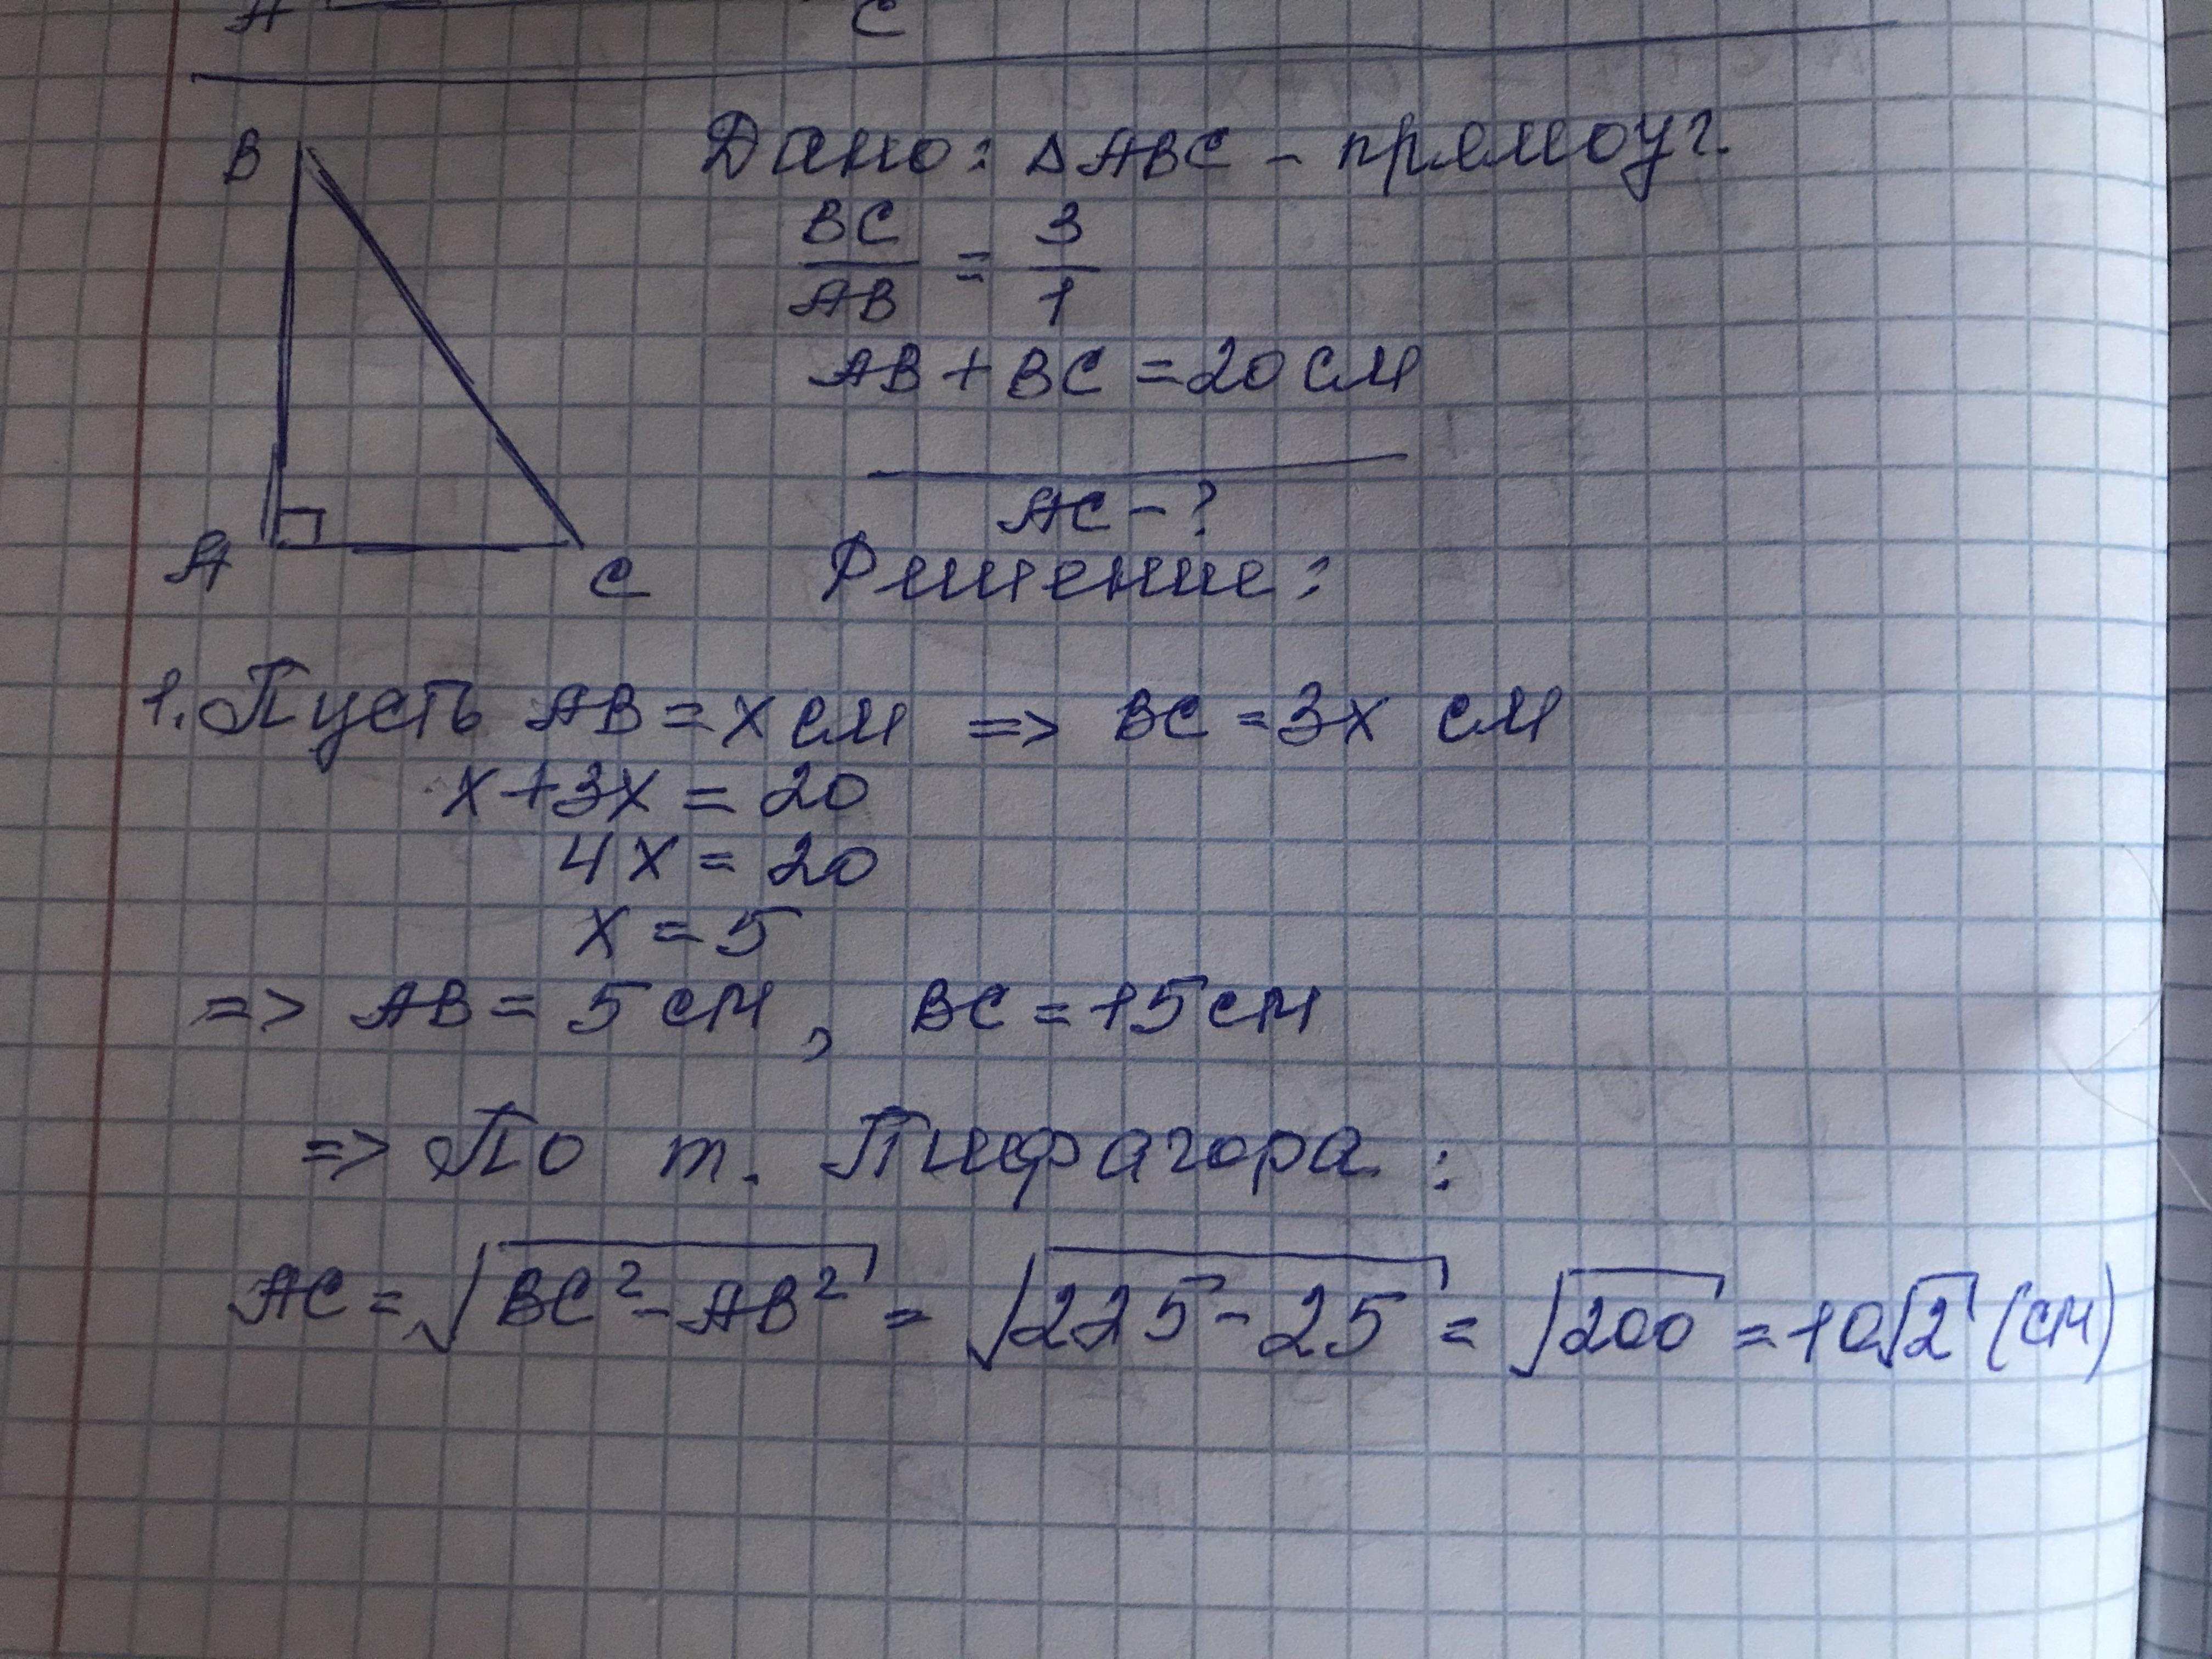 A C
B
Дано: △ABC - прямоуг.
BC/AB = 3/1
AB + BC = 20 см
AC - ?
A C
Решение:
1. Пусть AB = x см => BC = 3x см
x + 3x = 20
4x = 20
x = 5
=> AB = 5 см, BC = 15 см
=> По т. Пифагора:
AC = √(BC² - AB²) = √(225 - 25) = √200 = 10√2 (см)